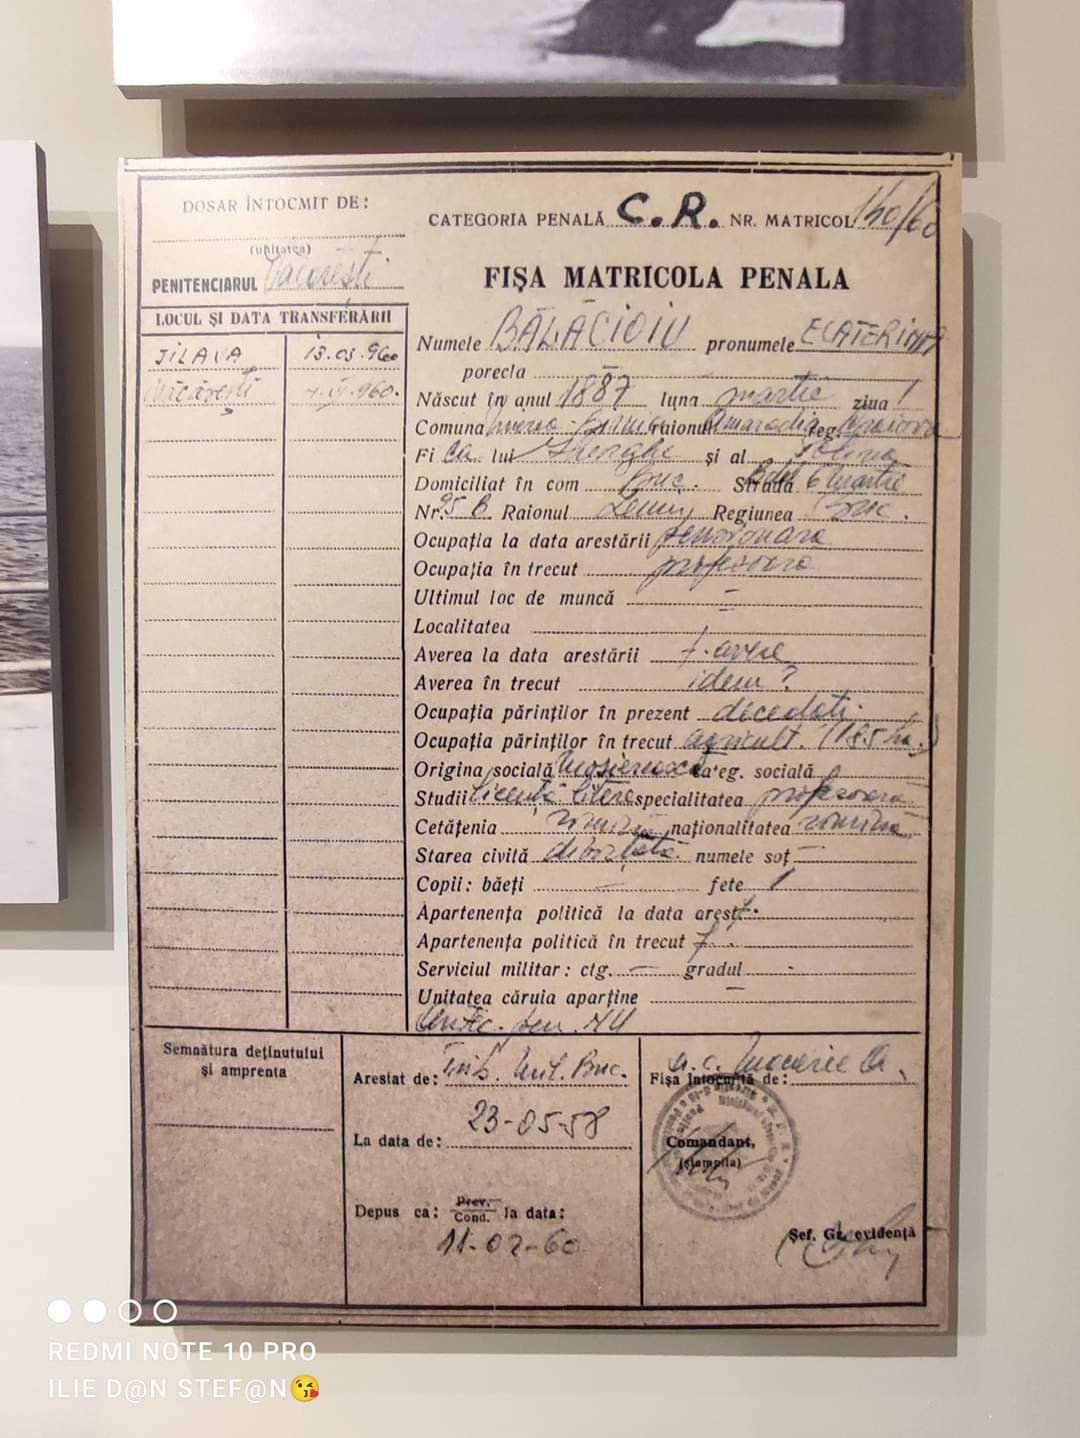 DOSAR ÎNTOCMIT DE:
(unitatea)
PENITENCIARUL Văcărești
LOCUL ȘI DATA TRANSFERĂRII
JILAVA 13.03.960
Văcărești 960.
CATEGORIA PENALĂ C.R. NR. MATRICOL 140/60
FIȘA MATRICOLA PENALA
Numele BĂLĂCIOIU pronumele ECATERINA
porecla
Născut în anul 1887 luna martie ziua 1
Comuna raionul Amaradia reg. Craiova
Fi ca lui Gheorghe și al
Domiciliat în com Buc. Strada Bdul 6 Martie
Nr. 95 B. Raionul Lenin Regiunea Buc.
Ocupația la data arestării pensionara
Ocupația în trecut profesoara
Ultimul loc de muncă —
Localitatea
Averea la data arestării f. avere
Averea în trecut idem ?
Ocupația părinților în prezent decedați.
Ocupația părinților în trecut agricult. (185 ha.)
Origina socială moșierească categ. socială
Studii licență litere specialitatea profesoară
Cetățenia română naționalitatea română
Starea civilă divorțată numele soț —
Copii: băeți — fete 1
Apartenența politică la data arest f.
Apartenența politică în trecut f.
Serviciul militar: ctg. — gradul -
Unitatea căruia aparține —
Semnătura deținutului
și amprenta
Arestat de: Trib. Mil. Buc.
La data de: 23-05-58
Depus ca: Prev. Cond. la data:
11-02-60
Fișa întocmită de:
Comandant,
(ștampila)
Șef. Gr. evidență
REDMI NOTE 10 PRO
ILIE D@N STEF@N😘